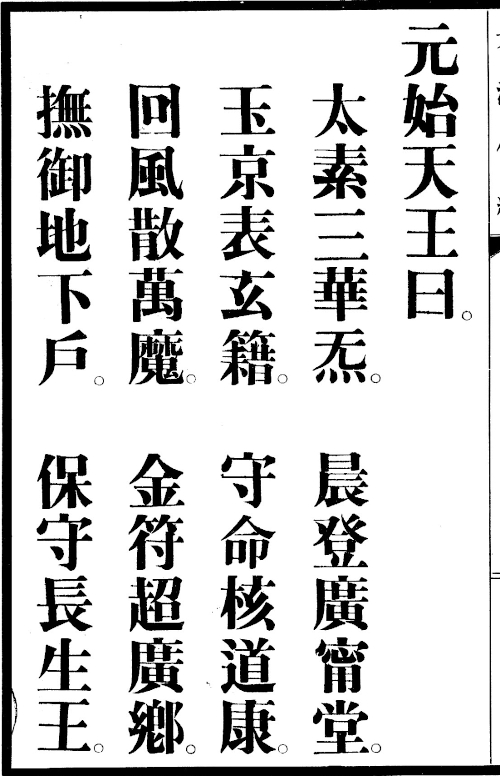 元始天王曰。
太素三華炁。晨登廣甯堂。
玉京表玄籍。守命核道康。
回風散萬魔。金符超廣鄉。
撫御地下戶。保守長生王。